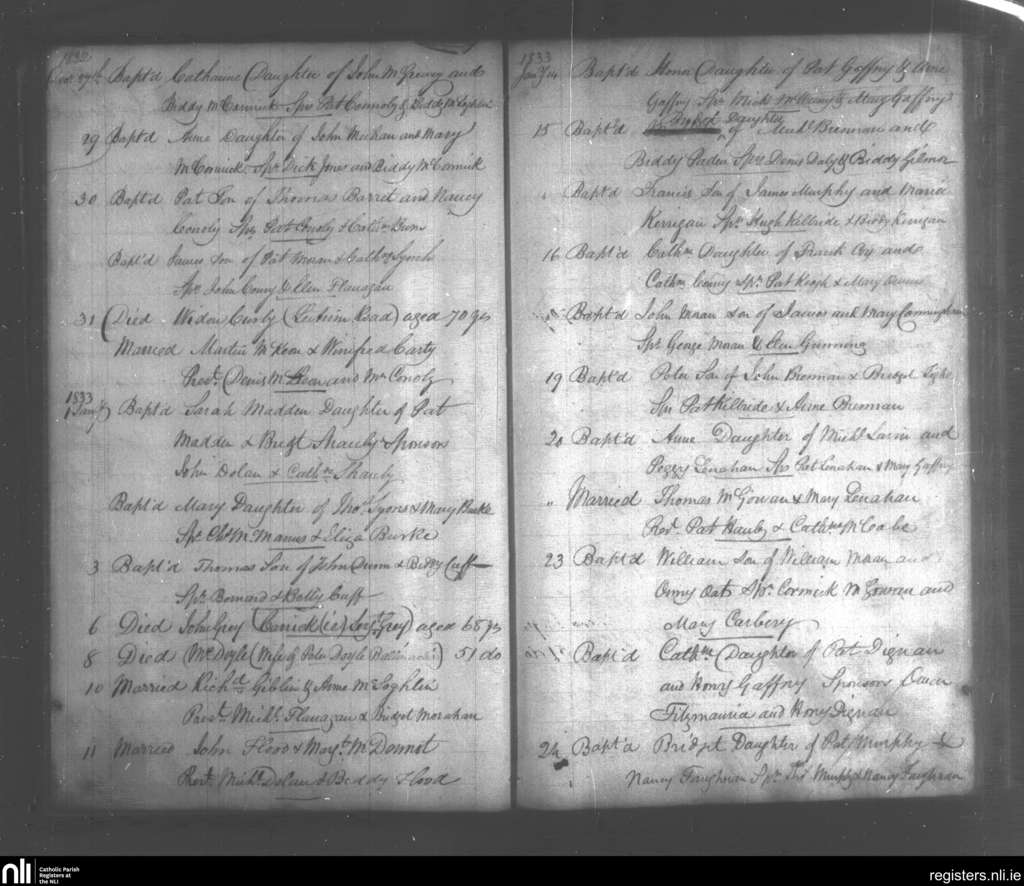 1832
Dec. 27th Bapt'd Catharine Daughter of John McGreevy and
Biddy McCormick Sprs Pat Connoly & Biddy
29 Bapt'd Anne Daughter of John Meehan and Mary
McCormick. Sprs Dick Jones and Biddy McCormick
30 Bapt'd Pat Son of Thomas Barret and Nancy
Conoly Sprs Pat Conoly & Cathne
Bapt'd James Son of Pat Moran & Cathne Lynch
Sprs John Conry & Ellen Flanagan
31 (Died Widow Curly (Leitrim Road) aged 70 yrs
Married Martin McKeon & Winifred Carty
Prest. Denis McKeon and Mr Conoly
1833
1 Jany Bapt'd Sarah Madden Daughter of Pat
Madden & Bridgt Shanly Sponsors
John Dolan & Cathne Shanly
Bapt'd Mary Daughter of Thos Lyons & Mary Burke
Sprs McManus & Eliza Burke
3 Bapt'd Thomas Son of John Dunn & Biddy Cuff
Sprs Bernard & Betty Cuff
6 Died John Grey (Carrick (ie) Grey) aged 68 yrs
8 Died Mrs Doyle (Wife of Peter Doyle) 51 do
10 Married Richd Giblin & Anne McLoghlin
Prest. Michl. Flanagan & Bridget Monahan
11 Married John Flood & Margt. McDermot
Prest. Michl. Dolan & Biddy Flood
1833
Jany 14 Bapt'd Hona Daughter of Pat Gaffny & Anne
Gaffny Sprs Mick & Mary Gaffny
15 Bapt'd Daughter of Michl Brennan and
Biddy Sprs Denis Daly & Biddy Gilmor
" Bapt'd Francis Son of James Murphy and Maria
Kerrigan Sprs Hugh Kilbride & Biddy Kerrigan
16 Bapt'd Cathne Daughter of Frank Coy and
Cathne Sprs Pat Keogh & Mary
Bapt'd John Moran Son of James and Mary Cunningham
Sprs George Moran & Ellen Gunning
19 Bapt'd Peter Son of John Brennan & Bridget
Sprs Pat Kilbride & Anne Brennan
20 Bapt'd Anne Daughter of Michl Larin and
Peggy Lenahan Sprs Pat Lenahan & Mary Gaffny
" Married Thomas McGowan & Mary Lenahan
Prest. Pat Hanly & Cathne McCabe
23 Bapt'd William Son of William Moran and
Onny Oats Sprs. Cormick McGowan and
Mary Carbery
Bapt'd Cathne (Daughter of Pat Dignan
and Honry Gaffny Sponsors Owen
Fitzmaurice and Honry Dignan
24 Bapt'd Bridget Daughter of Pat Murphy &
Nancy Faughnan Sprs Thos Murphy & Nancy Faughnan
nli
Catholic Parish
Registers at
the NLI
registers.nli.ie